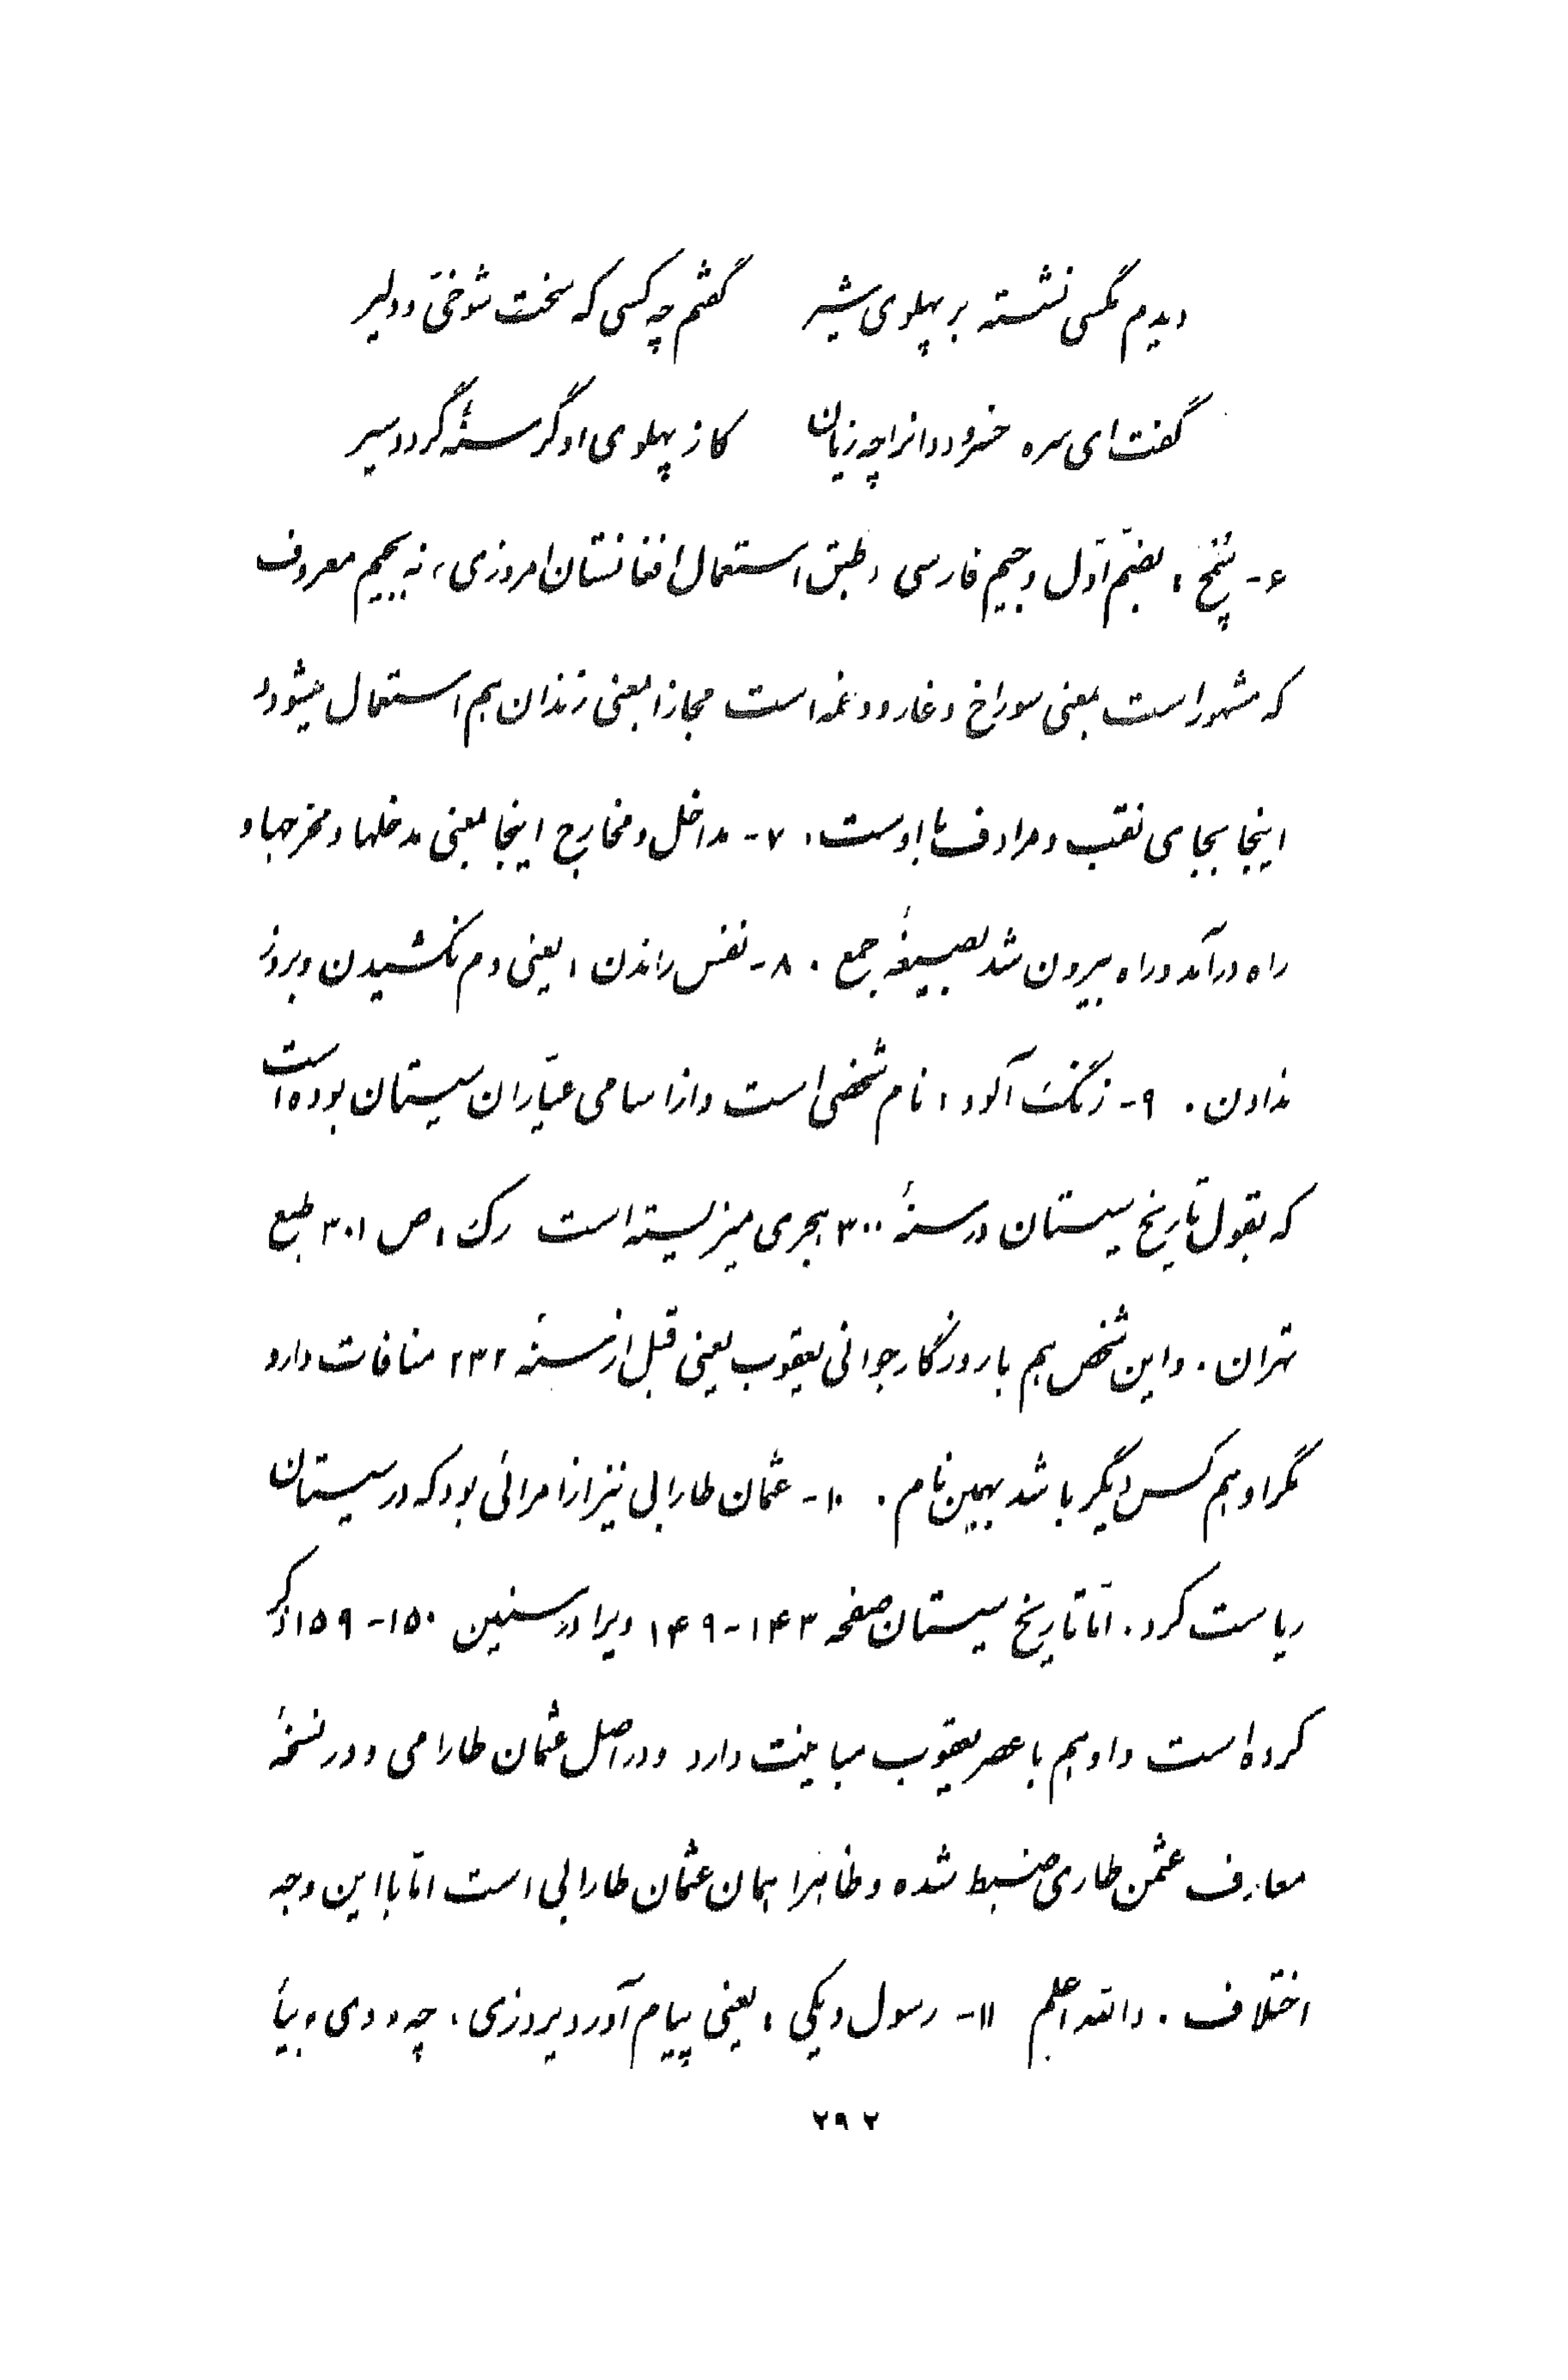 دیدم مگسی نشسته بر پهلوی شیر گفتم چه کسی که سخت شوخیّ و دلیر
گفت ای سره خسرو ددانرا چه زیان کاز پهلوی او گرسنهٔ گردد سیر
۶- پُخچ: بضمّ اوّل وجیم فارسی، طبق استعمال افغانستان امروزی، نه بجیم معروف
که مشهور است بمعنی سوراخ و غار و دخمه است مجازا بمعنی زندان هم استعمال میشود و
اینجا بجای نقب و مرادف با اوست. ۷- مداخل و مخارج اینجا بمعنی مدخلها و مخرجها و
راه درآمد و راه بیرون شد بصیغهٔ جمع. ۸- نفس راندن: یعنی دم نکشیدن و بروز
ندادن. ۹- زنگ آلود: نام شخصی است و از اسامی عیّاران سیستان بوده است
که بقول تاریخ سیستان در سنهٔ ۳۰۰ هجری میزیسته است رک: ص ۳۰۱ طبع
تهران. و این شخص هم با روزگار جوانی یعقوب یعنی قبل از سنهٔ ۲۳۲ منافات دارد
مگر او هم کس دیگر باشد بهمین نام. ۱۰- عثمان طارابی نیز از امرائی بود که در سیستان
ریاست کرد. امّا تاریخ سیستان صفحه ۱۴۳-۱۴۹ ویرا در سنین ۱۵۰-۱۵۹ ذکر
کرده است و او هم با عصر یعقوب مباینت دارد و در اصل عثمان طارامی و در نسخهٔ
معارف عثمن طاری ضبط شده و ظاهرا همان عثمان طارابی است امّا با این وجه
اختلاف. والله اعلم ۱۱- رسول دیکی: یعنی پیام آور دیروزی. چه، دی، بیأ
۲۹۲